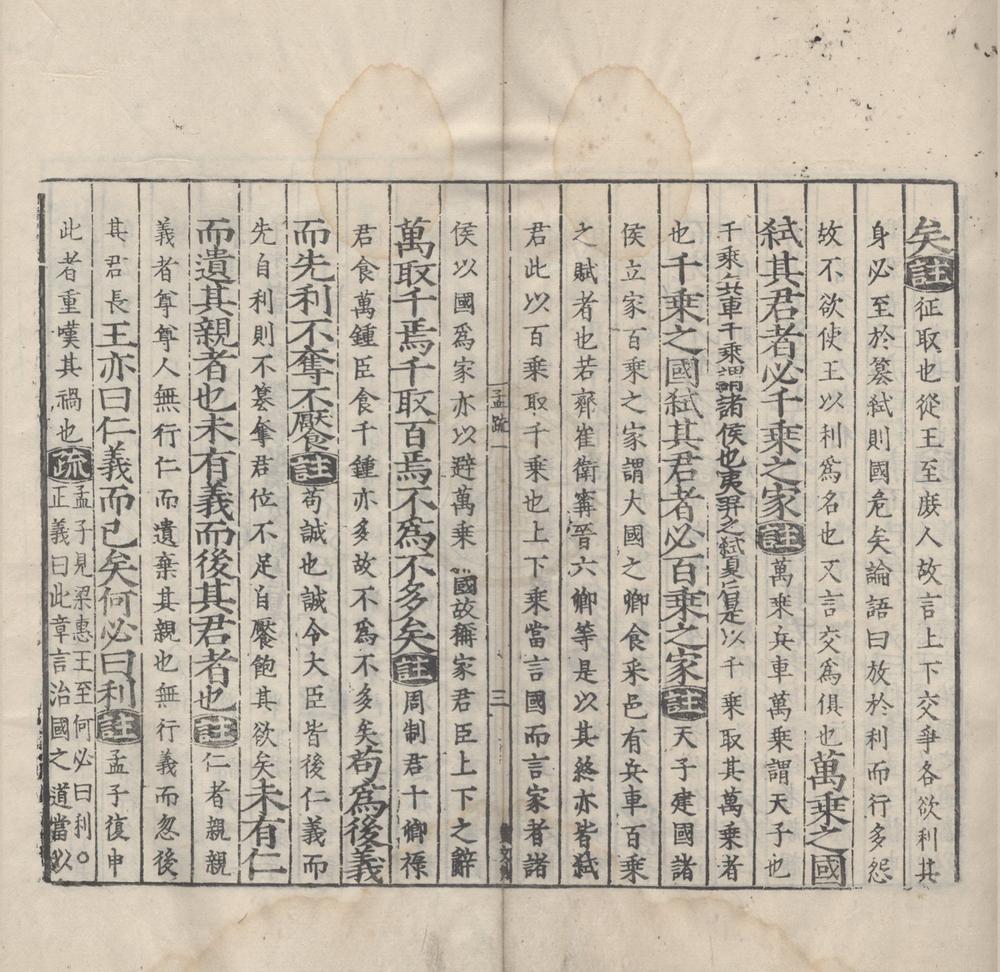 矣註征取也從王至庶人故言上下交爭各欲利其
身必至於簒弑則國危矣論語曰放於利而行多怨
故不欲使王以利爲名也又言交爲俱也萬乘之國
弑其君者必千乘之家註萬乘兵車萬乘謂天子也
千乘兵車千乘謂諸侯也夷羿之弑夏后是以千乘取其萬乘者
也千乘之國弑其君者必百乘之家註天子建國諸
侯立家百乘之家謂大國之卿食采邑有兵車百乘
之賦者也若齊崔衛甯晉六卿等是以其終亦皆弑
君此以百乘取千乘也上下乘當言國而言家者諸
孟疏一
三
侯以國爲家亦以避萬乘國故稱家君臣上下之辭
萬取千焉千取百焉不爲不多矣註周制君十卿祿
君食萬鍾臣食千鍾亦多故不爲不多矣苟爲後義
而先利不奪不饜註苟誠也誠令大臣皆後仁義而
先自利則不簒奪君位不足自饜飽其欲矣未有仁
而遺其親者也未有義而後其君者也註仁者親親
義者尊尊人無行仁而遺棄其親也無行義而忽後
其君長王亦曰仁義而已矣何必曰利註孟子復申
此者重嘆其禍也疏孟子見梁惠王至何必曰利○
正義曰此章言治國之道當以